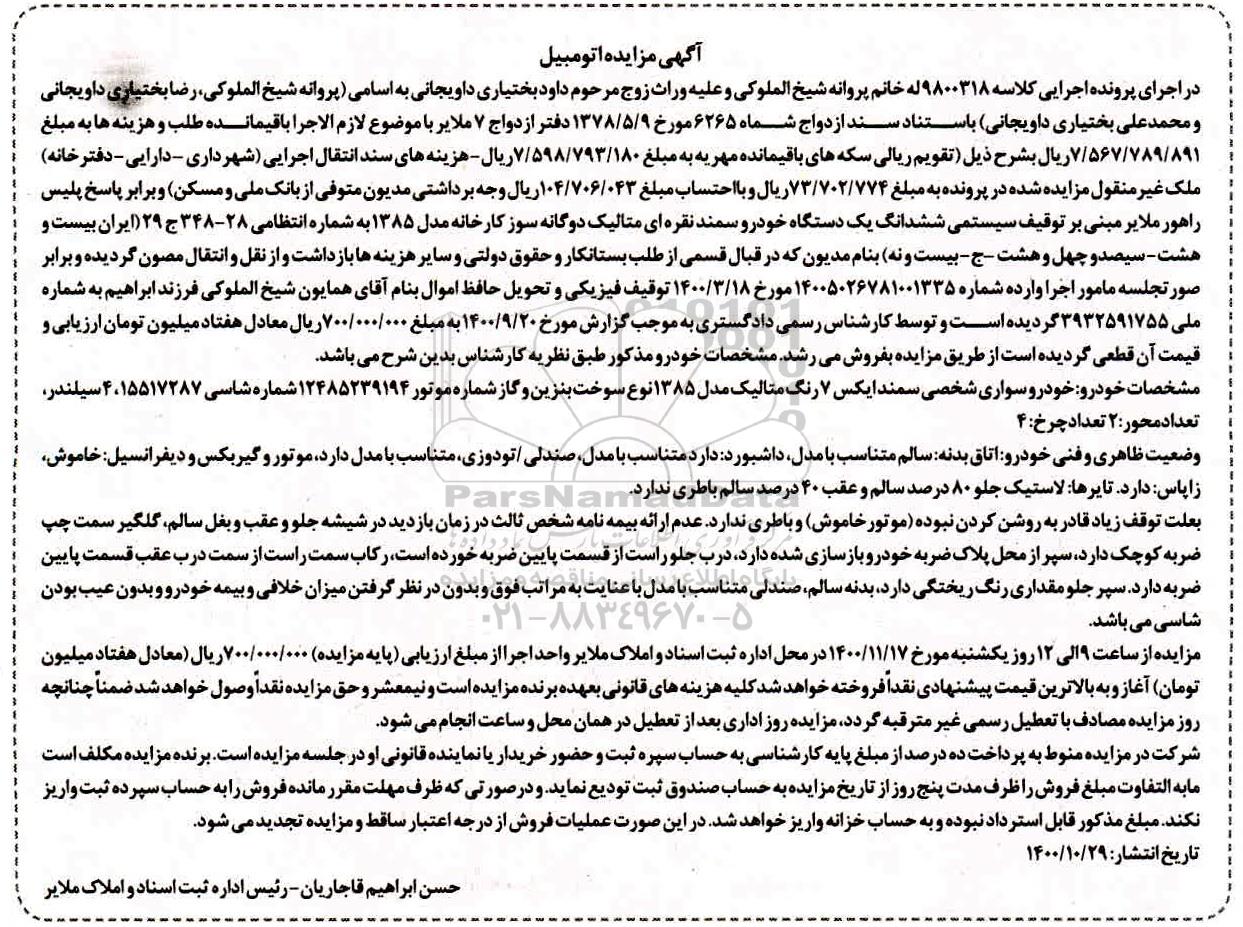 آگهی مزایده اتومبیل
در اجرای پرونده اجرایی کلاسه ۹۸۰۰۳۱۸ له خانم پروانه شیخ الملوکی و علیه وراث زوج مرحوم داود بختیاری داویجانی به اسامی (پروانه شیخ الملوکی، رضا بختیاری داویجانی
و محمدعلی بختیاری داویجانی) باستناد سند ازدواج شماه ۶۲۶۵ مورخ ۱۳۷۸/۵/۹ دفتر ازدواج ۷ ملایر با موضوع لازم الاجرا باقیمانده طلب و هزینه ها به مبلغ
۷/۵۶۷/۷۸۹/۸۹۱ریال بشرح ذیل (تقویم ریالی سکه های باقیمانده مهریه به مبلغ ۷/۵۹۸/۷۹۳/۱۸۰ریال -هزینه های سند انتقال اجرایی (شهرداری -دارایی-دفترخانه)
ملک غیر منقول مزایده شده در پرونده به مبلغ ۷۳/۷۰۲/۷۷۴ریال و بااحتساب مبلغ ۱۰۴/۷۰۶/۰۴۳ریال وجه برداشتی مدیون متوفی از بانک ملی و مسکن) و برابر پاسخ پلیس
راهور ملایر مبنی بر توقیف سیستمی ششدانگ یک دستگاه خودرو سمند نقره ای متالیک دوگانه سوز کارخانه مدل ۱۳۸۵ به شماره انتظامی ۲۸-۳۴۸ ج ۲۹ (ایران بیست و
هشت-سیصدو چهل و هشت -ج-بیست و نه) بنام مدیون که در قبال قسمی از طلب بستانکار و حقوق دولتی و سایر هزینه ها بازداشت و از نقل و انتقال مصون گردیده و برابر
صورتجلسه مامور اجرا وارده شماره ۱۴۰۰۵۰۲۶۷۸۱۰۰۱۳۳۵ مورخ ۱۴۰۰/۳/۱۸ توقیف فیزیکی و تحویل حافظ اموال بنام آقای همایون شیخ الملوکی فرزند ابراهیم به شماره
ملی ۳۹۳۲۵۹۱۷۵۵ گردیده است و توسط کارشناس رسمی دادگستری به موجب گزارش مورخ ۱۴۰۰/۹/۲۰ به مبلغ ۷۰۰/۰۰۰/۰۰۰ریال معادل هفتاد میلیون تومان ارزیابی و
قیمت آن قطعی گردیده است از طریق مزایده بفروش می رشد. مشخصات خودرو مذکور طبق نظریه کارشناس بدین شرح می باشد.
مشخصات خودرو: خودرو سواری شخصی سمند ایکس ۷ رنگ متالیک مدل ۱۳۸۵ نوع سوخت بنزین و گاز شماره موتور ۱۲۴۸۵۲۳۹۱۹۴ شماره شاسی ۱۵۵۱۷۲۸۷، ۴ سیلندر،
تعداد محور: ۲ تعداد چرخ: ۴
وضعیت ظاهری و فنی خودرو: اتاق بدنه: سالم متناسب با مدل، داشبورد: دارد متناسب با مدل، صندلی /تودوزی، متناسب با مدل دارد، موتور و گیربکس و دیفرانسیل: خاموش،
زاپاس: دارد. تایرها: لاستیک جلو ۸۰ درصد سالم و عقب ۴۰ درصد سالم باطری ندارد.
بعلت توقف زیاد قادر به روشن کردن نبوده (موتور خاموش) و باطری ندارد. عدم ارائه بیمه نامه شخص ثالث در زمان بازدید در شیشه جلو و عقب و بغل سالم، گلگیر سمت چپ
ضربه کوچک دارد، سپر از محل پلاک ضربه خودرو بازسازی شده دارد، درب جلو راست از قسمت پایین ضربه خورده است، رکاب سمت راست از سمت درب عقب قسمت پایین
ضربه دارد. سپر جلو مقداری رنگ ریختگی دارد، بدنه سالم، صندلی متناسب با مدل با عنایت به مراتب فوق و بدون در نظر گرفتن میزان خلافی و بیمه خودرو و بدون عیب بودن
شاسی می باشد.
مزایده از ساعت ۹ الی ۱۲ روز یکشنبه مورخ ۱۴۰۰/۱۱/۱۷ در محل اداره ثبت اسناد و املاک ملایر واحد اجرا از مبلغ ارزیابی (پایه مزایده) ۷۰۰/۰۰۰/۰۰۰ریال (معادل هفتاد میلیون
تومان) آغاز و به بالاترین قیمت پیشنهادی نقداً فروخته خواهد شد کلیه هزینه های قانونی بعهده برنده مزایده است و نیمعشر و حق مزایده نقداً وصول خواهد شد ضمناً چنانچه
روز مزایده مصادف با تعطیل رسمی غیر مترقبه گردد، مزایده روز اداری بعد از تعطیل در همان محل و ساعت انجام می شود.
شرکت در مزایده منوط به پرداخت ده درصد از مبلغ پایه کارشناسی به حساب سپره ثبت و حضور خریدار یا نماینده قانونی او در جلسه مزایده است. برنده مزایده مکلف است
مابه التفاوت مبلغ فروش را ظرف مدت پنج روز از تاریخ مزایده به حساب صندوق ثبت تودیع نماید. و در صورتی که ظرف مهلت مقرر مانده فروش را به حساب سپرده ثبت واریز
نکند. مبلغ مذکور قابل استرداد نبوده و به حساب خزانه واریز خواهد شد. در این صورت عملیات فروش از درجه اعتبار ساقط و مزایده تجدید می شود.
تاریخ انتشار: ۱۴۰۰/۱۰/۲۹
حسن ابراهیم قاجاریان-رئیس اداره ثبت اسناد و املاک ملایر
ParsNamadData
پایگاه اطلاع رسانی مناقصه و مزایده
۰۲۱-۸۸۳۴۹۶۷۰-۵